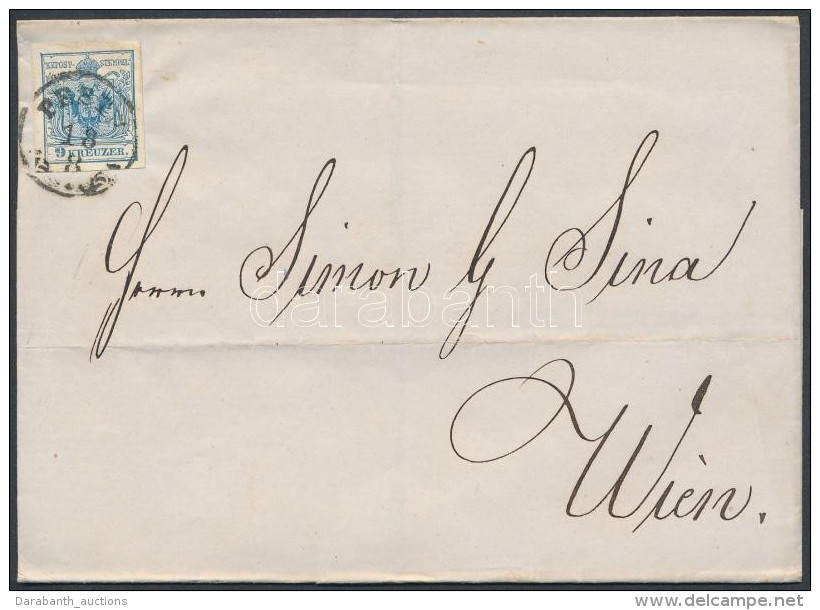 KKPOST-STEMPEL
18
8
9 KREUZER.
Herrn Simon G Sina
darabanth
Wien.
Darabanth_auctions
http://www.delcampe.net